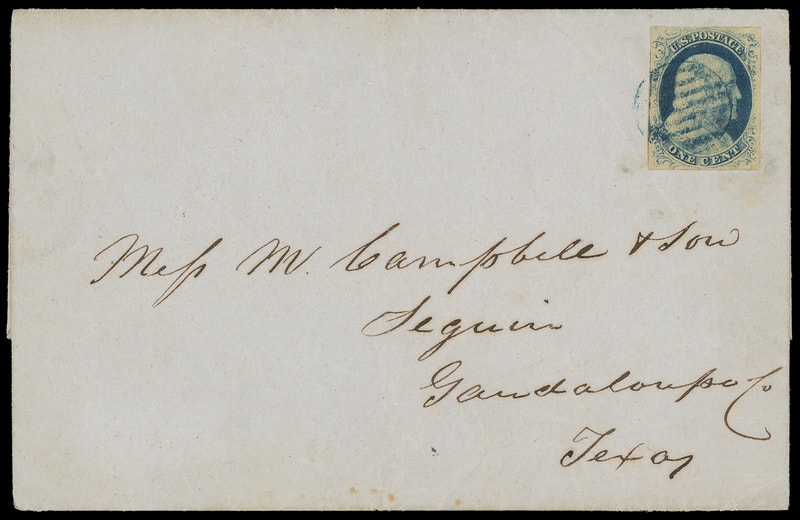 U.S. POSTAGE
ONE CENT
Mess M. Campbell & Son
Seguin
Gaudaloupe Co
Texas